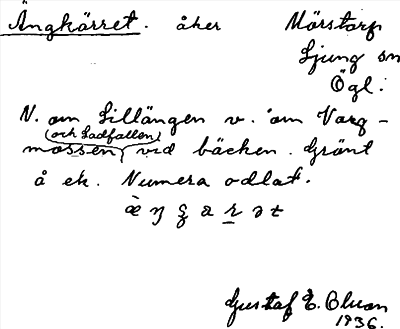 Ängkärret. åker Mörstorp
Ljung sn
Ögl.
N. om Lillängen v. om Varg-
(och Ladfallen)
mossen vid bäcken. Gränt
å ek. Numera odlat.
Gustaf E. Bluon
1936.